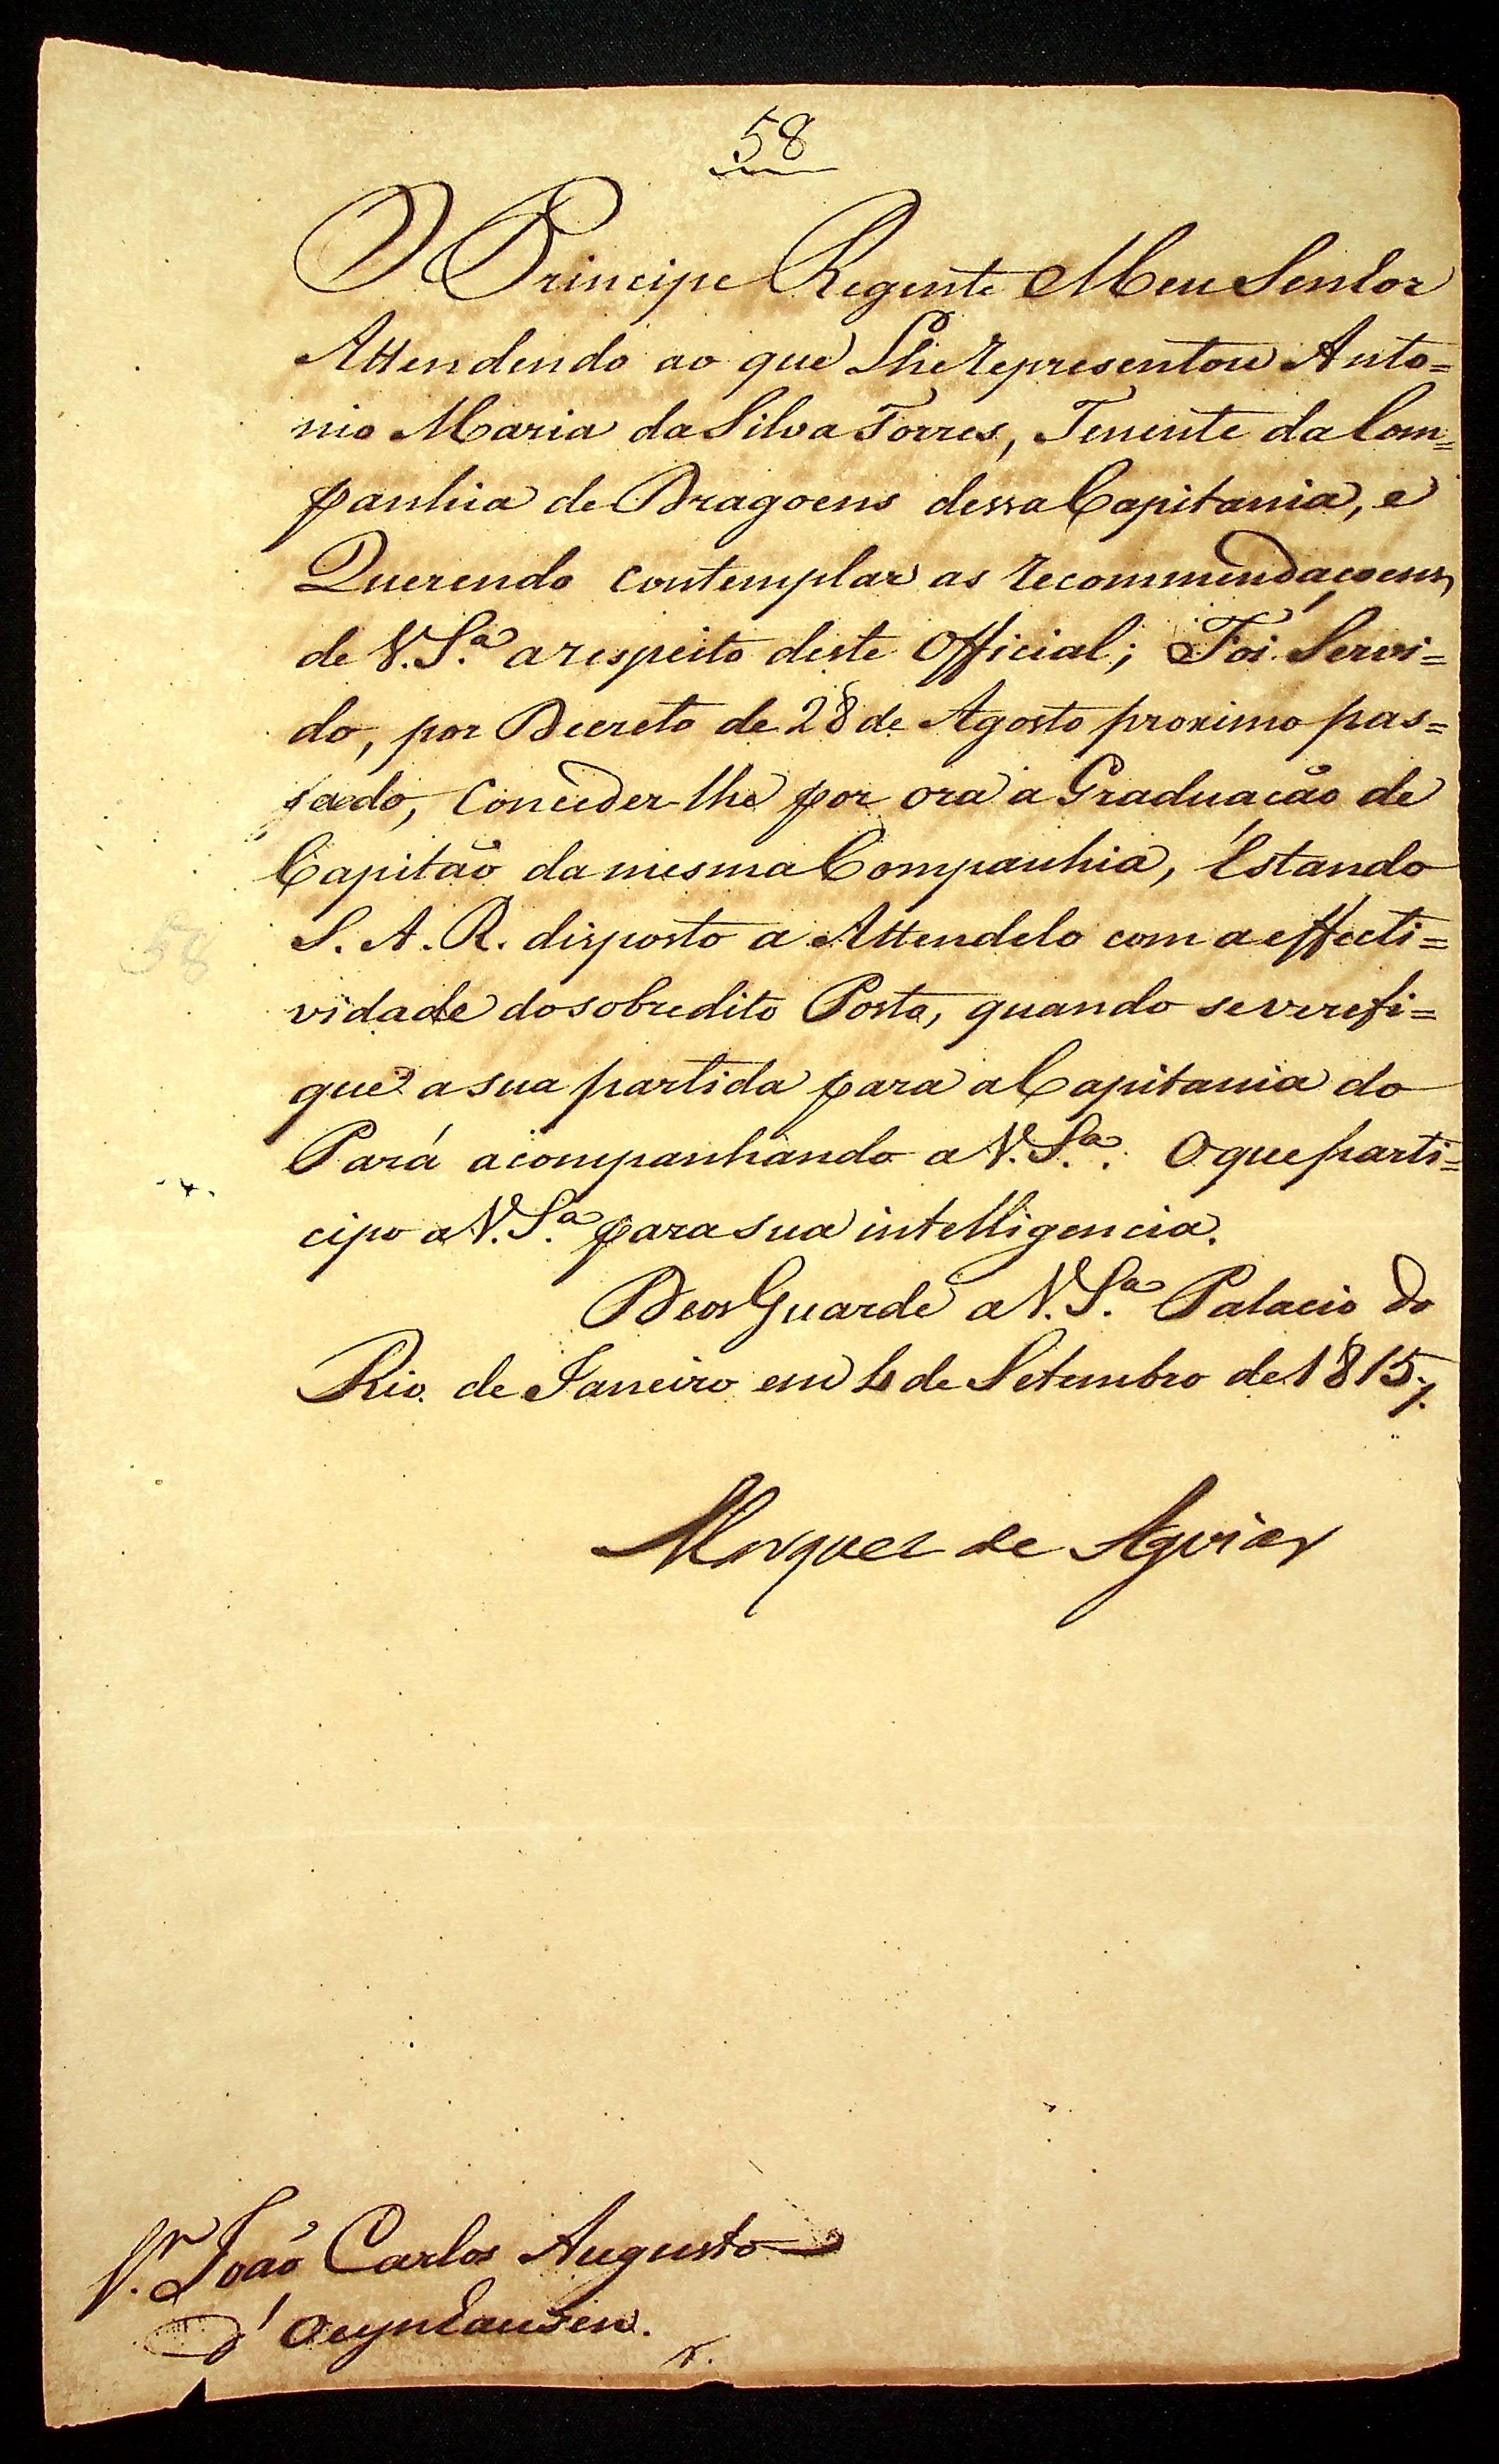 58
O Principe Regente Meu Senhor
Attendendo ao que Lhe representou Anto=
nio Maria da Silva Torres, Tenente da Com=
panhia de Dragoens dessa Capitania, e
Querendo contemplar as recommendaçoens
de V. S.ª a respeito deste Official; Foi Servi=
do, por Decreto de 28 de Agosto proximo pas=
sado, Conceder-lhe por ora a Graduação de
Capitão da mesma Companhia, Estando
S. A. R. disposto a Attendelo com a effecti=
vidade do sobredito Posto, quando se verefi=
que a sua partida para a Capitania do
58
Pará acompanhando a V. S.ª. O que parti=
cipo a V. S.ª para sua intelligencia.
Deos Guarde a V. S.ª Palacio do
Rio de Janeiro em 4 de Setembro de 1815
Marquez de Aguiar
S.r João Carlos Augusto
d'Oeynhausen.